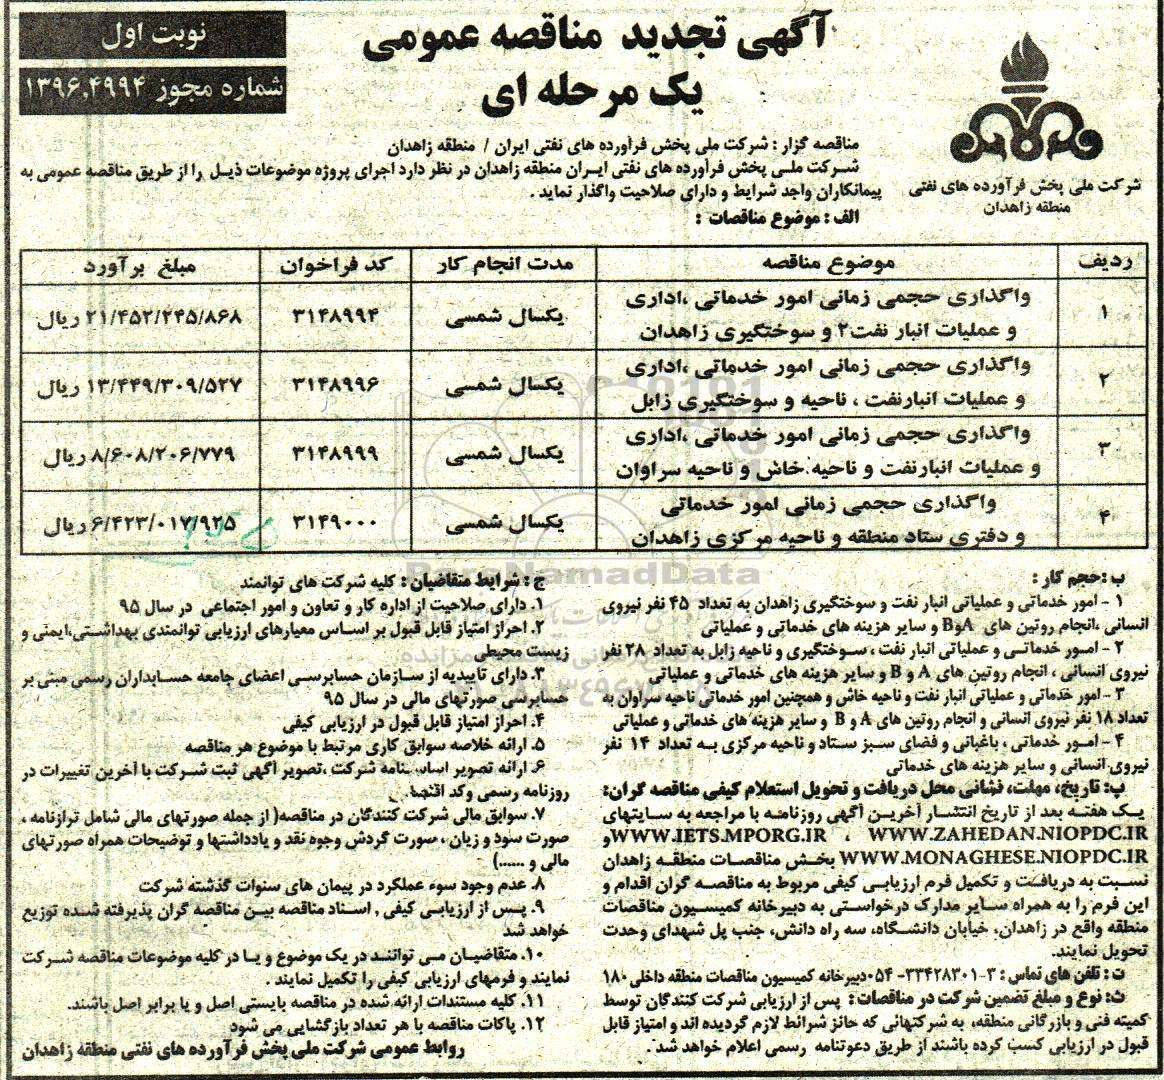 نوبت اول
شماره مجوز ۱۳۹۶,۴۹۹۴
آگهی تجدید مناقصه عمومی
یک مرحله ای
شرکت ملی پخش فرآورده های نفتی
منطقه زاهدان
مناقصه گزار : شرکت ملی پخش فرآورده های نفتی ایران / منطقه زاهدان
شرکت ملی پخش فرآورده های نفتی ایران منطقه زاهدان در نظر دارد اجرای پروژه موضوعات ذیل را از طریق مناقصه عمومی به
پیمانکاران واجد شرایط و دارای صلاحیت واگذار نماید .
الف : موضوع مناقصات :
ردیف موضوع مناقصه مدت انجام کار کد فراخوان مبلغ برآورد
۱ واگذاری حجمی زمانی امور خدماتی ،اداری
و عملیات انبار نفت۲ و سوختگیری زاهدان یکسال شمسی ۳۱۴۸۹۹۴ ۲۱/۴۵۲/۲۴۵/۸۶۸ ریال
۲ واگذاری حجمی زمانی امور خدماتی ،اداری
و عملیات انبارنفت ، ناحیه و سوختگیری زابل یکسال شمسی ۳۱۴۸۹۹۶ ۱۳/۴۴۹/۳۰۹/۵۲۷ ریال
۳ واگذاری حجمی زمانی امور خدماتی ،اداری
و عملیات انبارنفت و ناحیه خاش و ناحیه سراوان یکسال شمسی ۳۱۴۸۹۹۹ ۸/۶۰۸/۲۰۶/۷۷۹ ریال
۴ واگذاری حجمی زمانی امور خدماتی
و دفتری ستاد منطقه و ناحیه مرکزی زاهدان یکسال شمسی ۳۱۴۹۰۰۰ ۶/۴۲۳/۰۱۷/۹۲۵ ریال
ParsNamadData
ب :حجم کار :
۱ - امور خدماتی و عملیاتی انبار نفت و سوختگیری زاهدان به تعداد ۴۵ نفر نیروی
انسانی ،انجام روتین های AوB و سایر هزینه های خدماتی و عملیاتی
۲ - امور خدماتی و عملیاتی انبار نفت ، سوختگیری و ناحیه زابل به تعداد ۲۸ نفر
نیروی انسانی ، انجام روتین های A و B و سایر هزینه های خدماتی و عملیاتی
۳ - امور خدماتی و عملیاتی انبار نفت و ناحیه خاش و همچنین امور خدماتی ناحیه سراوان به
تعداد ۱۸ نفر نیروی انسانی و انجام روتین های A و B و سایر هزینه های خدماتی و عملیاتی
۴ - امور خدماتی ، باغبانی و فضای سبز ستاد و ناحیه مرکزی به تعداد ۱۴ نفر
نیروی انسانی و سایر هزینه های خدماتی
پ: تاریخ، مهلت، نشانی محل دریافت و تحویل استعلام کیفی مناقصه گران:
یک هفته بعد از تاریخ انتشار آخرین آگهی روزنامه با مراجعه به سایتهای
WWW.ZAHEDAN.NIOPDC.IR ، WWW.IETS.MPORG.IR و
WWW.MONAGHESE.NIOPDC.IR بخش مناقصات منطقه زاهدان
نسبت به دریافت و تکمیل فرم ارزیابی کیفی مربوط به مناقصه گران اقدام و
این فرم را به همراه سایر مدارک درخواستی به دبیرخانه کمیسیون مناقصات
منطقه واقع در زاهدان، خیابان دانشگاه، سه راه دانش، جنب پل شهدای وحدت
تحویل نمایند.
ت: تلفن های تماس : ۳-۳۳۴۲۸۳۰۱-۰۵۴دبیرخانه کمیسیون مناقصات منطقه داخلی ۱۸۰
ث: نوع و مبلغ تضمین شرکت در مناقصات : پس از ارزیابی شرکت کنندگان توسط
کمیته فنی و بازرگانی منطقه، به شرکتهائی که حائز شرائط لازم گردیده اند و امتیاز قابل
قبول در ارزیابی کسب کرده باشند از طریق دعوتنامه رسمی اعلام خواهد شد .
ج : شرایط متقاضیان : کلیه شرکت های توانمند
۱. دارای صلاحیت از اداره کار و تعاون و امور اجتماعی در سال ۹۵
۲. احراز امتیاز قابل قبول بر اساس معیارهای ارزیابی توانمندی بهداشتی،ایمنی و
زیست محیطی
۳. دارای تاییدیه از سازمان حسابرسی اعضای جامعه حسابداران رسمی مبنی بر
حسابرسی صورتهای مالی در سال ۹۵
۴. احراز امتیاز قابل قبول در ارزیابی کیفی
۵. ارائه خلاصه سوابق کاری مرتبط با موضوع هر مناقصه
۶. ارائه تصویر اساسنامه شرکت ،تصویر آگهی ثبت شرکت با آخرین تغییرات در
روزنامه رسمی وکد اقتصا.
۷. سوابق مالی شرکت کنندگان در مناقصه( از جمله صورتهای مالی شامل ترازنامه ،
صورت سود و زیان ، صورت گردش وجوه نقد و یادداشتها و توضیحات همراه صورتهای
مالی و ......)
۸. عدم وجود سوء عملکرد در پیمان های سنوات گذشته شرکت
۹. پس از ارزیابی کیفی , اسناد مناقصه بین مناقصه گران پذیرفته شده توزیع
خواهد شد
۱۰. متقاضیان می توانند در یک موضوع و یا در کلیه موضوعات مناقصه شرکت
نمایند و فرمهای ارزیابی کیفی را تکمیل نمایند .
۱۱. کلیه مستندات ارائه شده در مناقصه بایستی اصل و یا برابر اصل باشند.
۱۲. پاکات مناقصه با هر تعداد بازگشایی می شود
روابط عمومی شرکت ملی پخش فرآورده های نفتی منطقه زاهدان